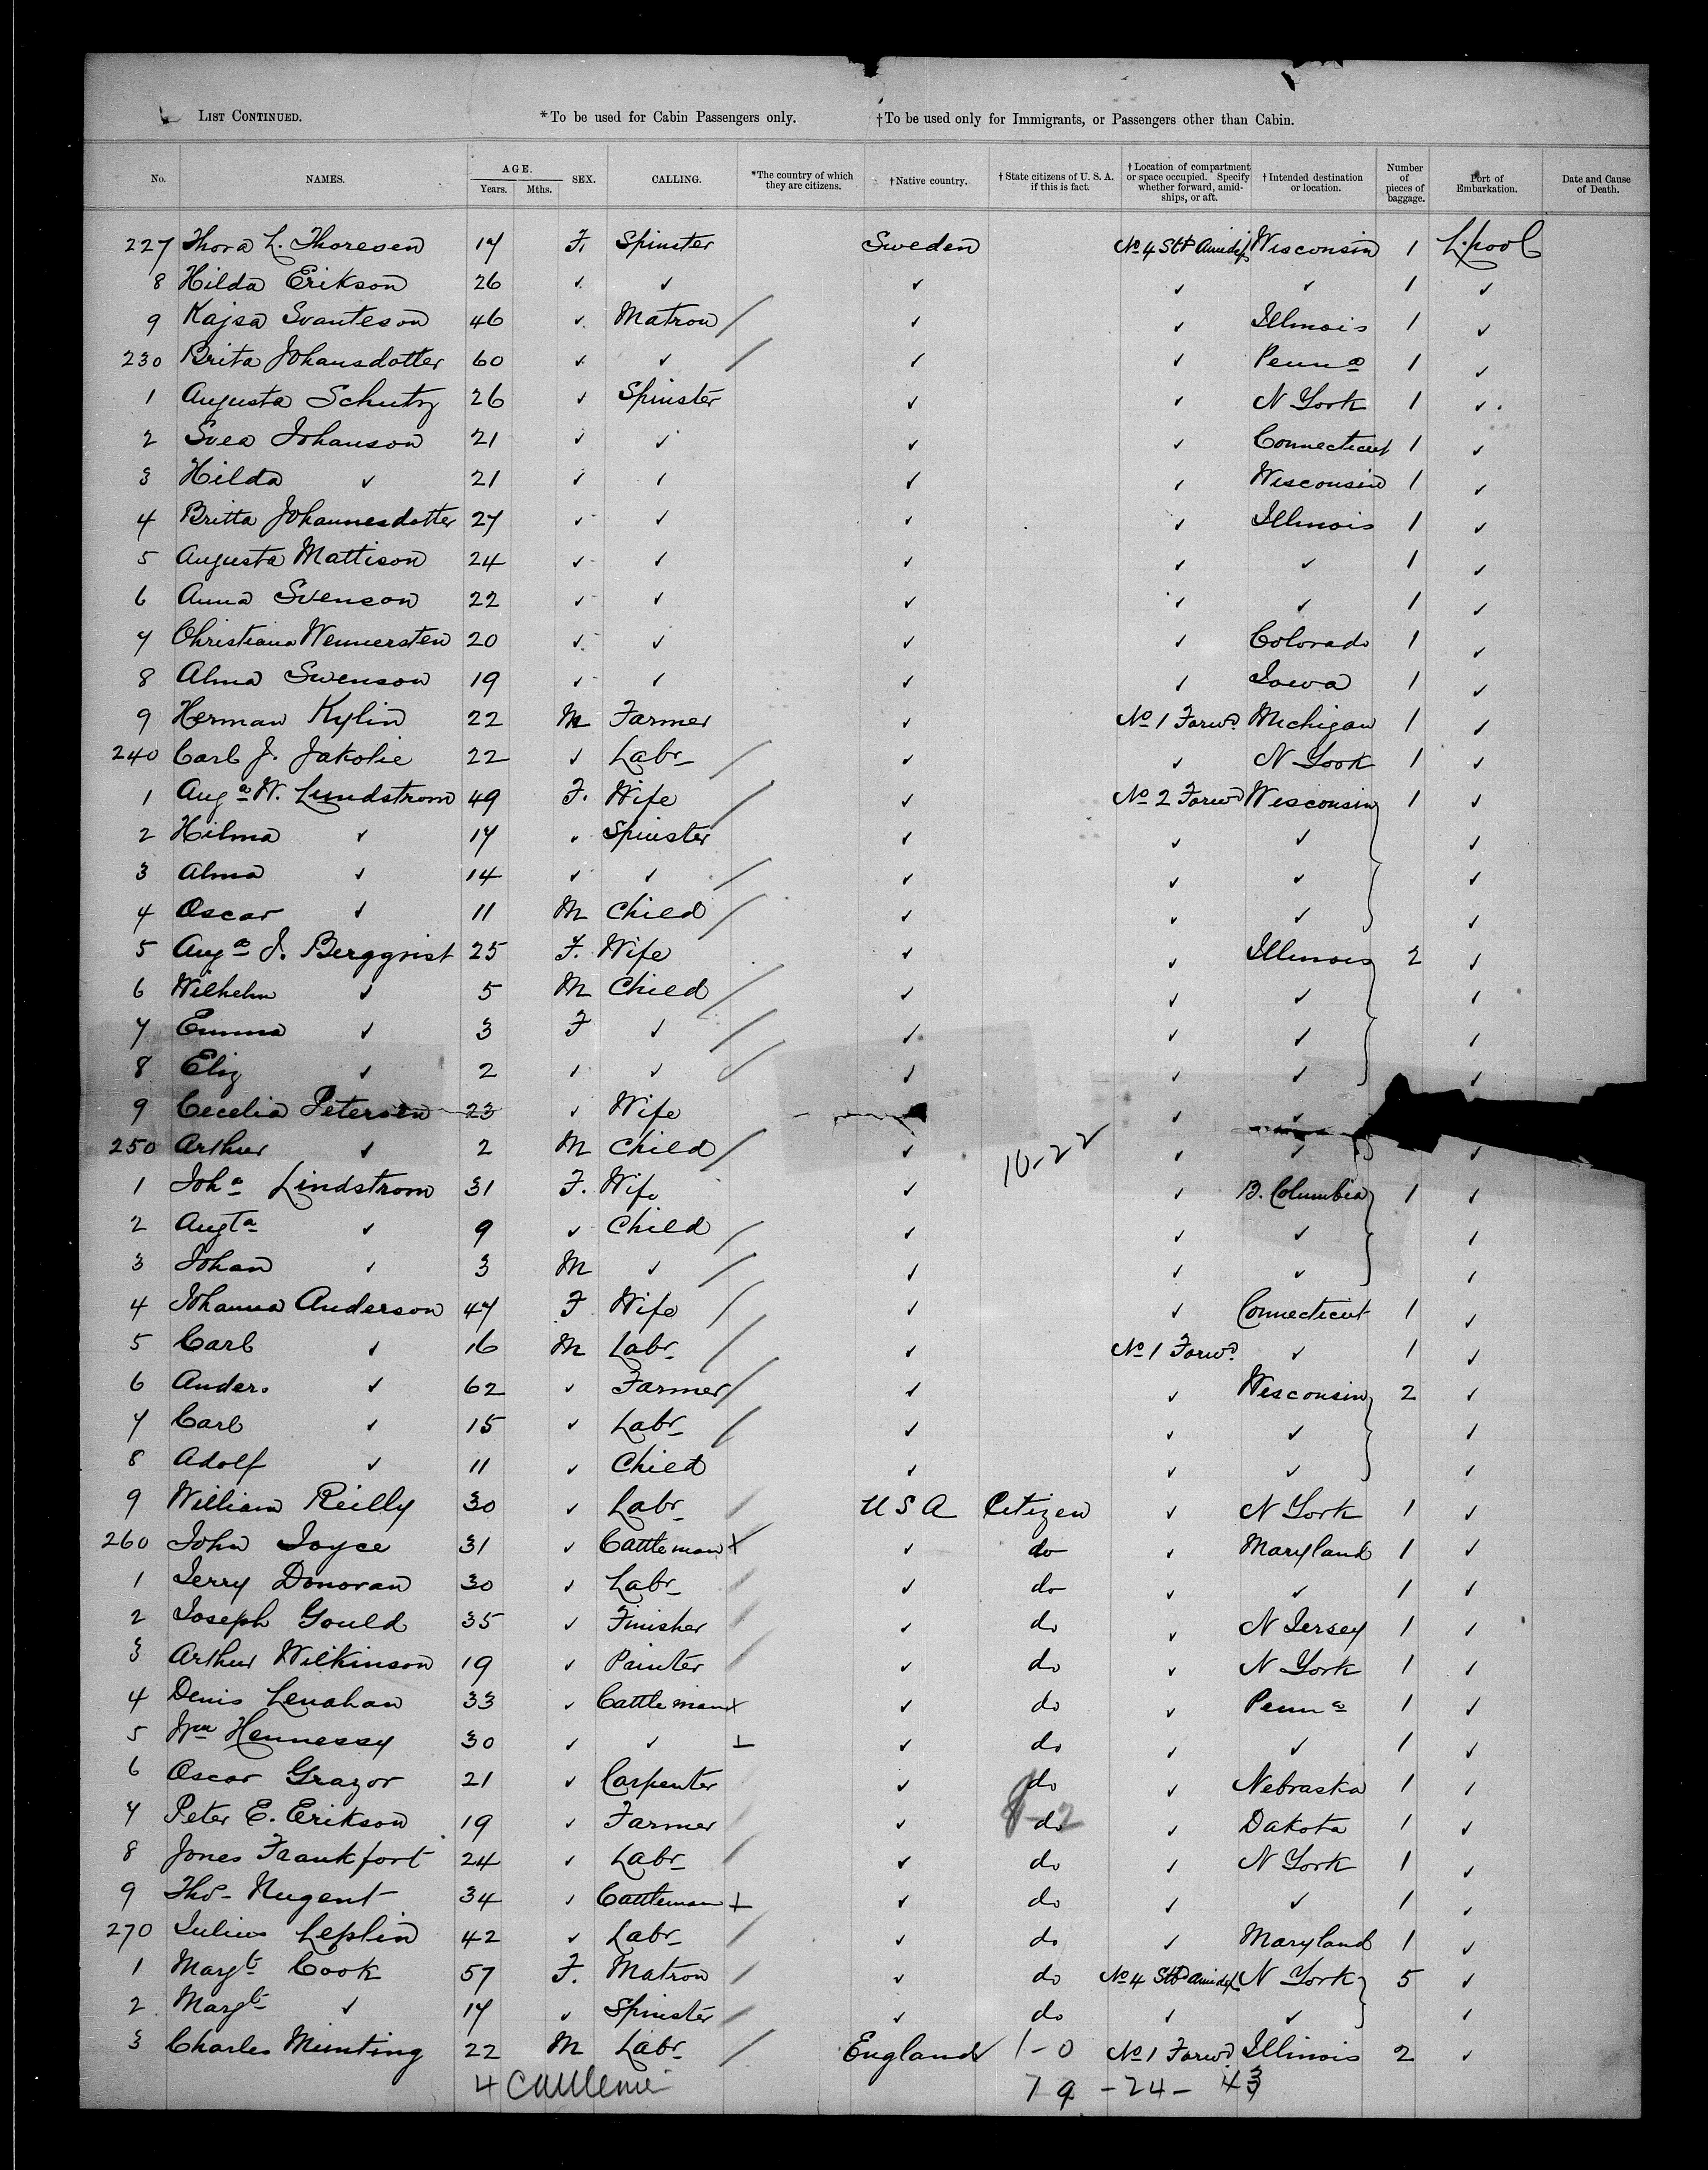 LIST CONTINUED. *To be used for Cabin Passengers only. †To be used only for Immigrants, or Passengers other than Cabin.
No. NAMES. AGE. Years. Mths. SEX. CALLING. *The country of which they are citizens. †Native country. †State citizens of U. S. A. if this is fact. †Location of compartment or space occupied. Specify whether forward, amidships, or aft. †Intended destination or location. Number of pieces of baggage. Port of Embarkation. Date and Cause of Death.
227 Thora L. Thoresen 17 F. Spinster Sweden No 4 Stb Amidps Wisconsin 1 L.pool
8 Hilda Erikson 26 ✓ ✓ ✓ ✓ ✓ 1 ✓
9 Kajsa Svanteson 46 ✓ Matron / ✓ ✓ Illinois 1 ✓
230 Brita Johansdotter 60 ✓ ✓ / ✓ ✓ Penna 1 ✓
1 Augusta Schutz 26 ✓ Spinster ✓ ✓ N York 1 ✓
2 Svea Johanson 21 ✓ ✓ ✓ ✓ Connecticut 1 ✓
3 Hilda ✓ 21 ✓ ✓ ✓ ✓ Wisconsin 1 ✓
4 Britta Johannesdotter 27 ✓ ✓ ✓ ✓ Illinois 1 ✓
5 Augusta Mattison 24 ✓ ✓ ✓ ✓ ✓ 1 ✓
6 Anna Svenson 22 ✓ ✓ ✓ ✓ ✓ 1 ✓
7 Christiana Wennersten 20 ✓ ✓ ✓ ✓ Colorado 1 ✓
8 Alma Swenson 19 ✓ ✓ ✓ ✓ Iowa 1 ✓
9 Herman Kylin 22 M Farmer ✓ No 1 Forwd. Michigan 1 ✓
240 Carl J. Jakolie 22 ✓ Labr / ✓ ✓ N York 1 ✓
1 Auga W. Lundstrom 49 F. Wife / ✓ No 2 Forwd Wisconsin 1 ✓
2 Hilma ✓ 17 ✓ Spinster ✓ ✓ ✓ ✓
3 Alma ✓ 14 ✓ ✓ / ✓ ✓ ✓ ✓
4 Oscar ✓ 11 M Child / ✓ ✓ ✓ ✓
5 Auga J. Bergqvist 25 F. Wife ✓ ✓ Illinois 2 ✓
6 Wilhelm ✓ 5 M Child / ✓ ✓ ✓ ✓
7 Emma ✓ 3 F ✓ / ✓ ✓ ✓ ✓
8 Eliz ✓ 2 ✓ ✓ / ✓ ✓ ✓ ✓
9 Cecelia Petersen 23 ✓ Wife ✓ ✓
250 Arthur ✓ 2 M Child / ✓ 10-22 ✓ ✓ ✓
1 Joha Lindstrom 31 F. Wife ✓ ✓ B. Columbia 1 ✓
2 Augta ✓ 9 ✓ Child / ✓ ✓ ✓ ✓
3 Johan ✓ 3 M ✓ / ✓ ✓ ✓ ✓
4 Johanna Anderson 47 F Wife / ✓ ✓ Connecticut 1 ✓
5 Carl ✓ 16 M Labr / ✓ No 1 Forwd. ✓ 1 ✓
6 Anders ✓ 62 ✓ Farmer / ✓ ✓ Wisconsin 2 ✓
7 Carl ✓ 15 ✓ Labr / ✓ ✓ ✓ ✓
8 Adolf ✓ 11 ✓ Child ✓ ✓ ✓ ✓
9 William Reilly 30 ✓ Labr / U S A Citizen ✓ N York 1 ✓
260 John Joyce 31 ✓ Cattleman x ✓ do ✓ Maryland 1 ✓
1 Jerry Donovan 30 ✓ Labr / ✓ do ✓ ✓ 1 ✓
2 Joseph Gould 35 ✓ Finisher / ✓ do ✓ N Jersey 1 ✓
3 Arthur Wilkinson 19 ✓ Painter / ✓ do ✓ N York 1 ✓
4 Denis Lenahan 33 ✓ Cattleman x ✓ do ✓ Penna 1 ✓
5 Wm Hennessy 30 ✓ ✓ + ✓ do ✓ ✓ 1 ✓
6 Oscar Grazor 21 ✓ Carpenter ✓ do ✓ Nebraska 1 ✓
7 Peter E. Erikson 19 ✓ Farmer / ✓ do ✓ Dakota 1 ✓
8 Jones Frankfort 24 ✓ Labr / ✓ do ✓ N York 1 ✓
9 Thos Nugent 34 ✓ Cattleman + ✓ do ✓ ✓ 1 ✓
270 Julius Leplin 42 ✓ Labr / ✓ do ✓ Maryland 1 ✓
1 Margt Cook 57 F. Matron / ✓ do No 4 Stb Amidps N York 5 ✓
2 Margt ✓ 17 ✓ Spinster / ✓ do ✓ ✓ ✓
3 Charles Munting 22 M Labr / England 1-0 No 1 Forwd. Illinois 2 ✓
4 19 - 24 - 43